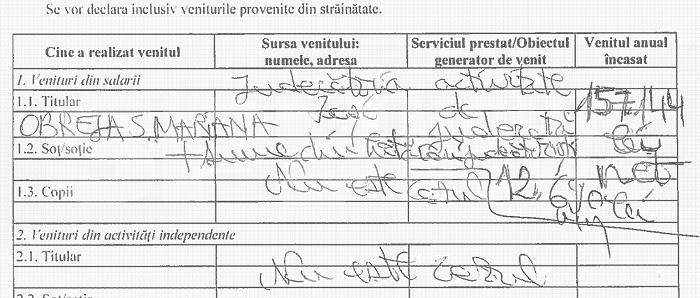 Se vor declara inclusiv veniturile provenite din străinătate.
Cine a realizat venitul
Sursa venitului: numele, adresa
Serviciul prestat/Obiectul generator de venit
Venitul anual încasat
1. Venituri din salarii
Judecătoria activitate
1.1. Titular
Iași de 157.144
OBREJA S. MARIANA
judecată lei
1.2. Soț/soție
net
Nu este cazul
1.3. Copii
lei
2. Venituri din activități independente
2.1. Titular
Nu este cazul